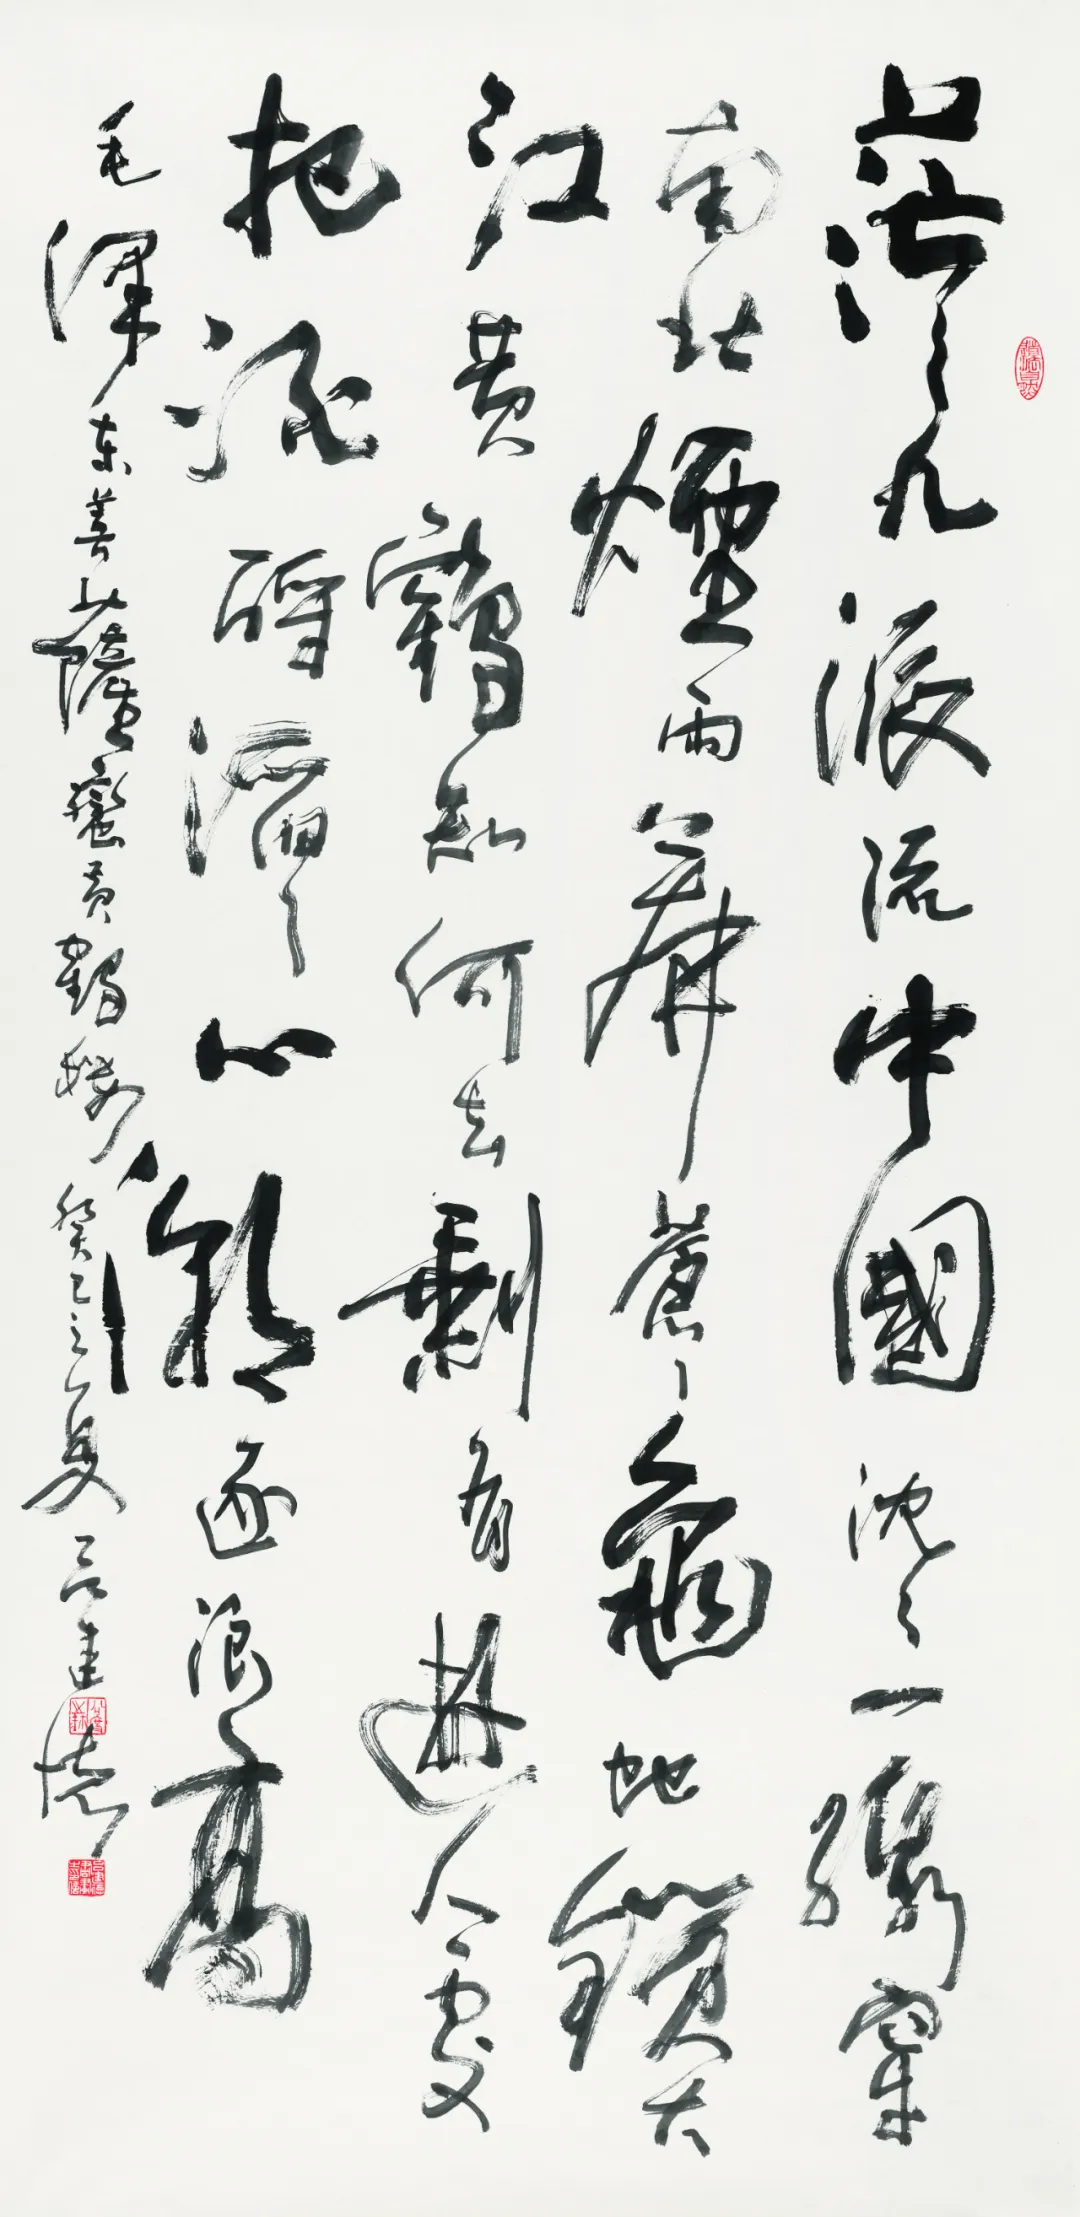 茫々九派流中國沈々一線穿
南北煙雨莽蒼々龜蛇鎖大
江黄鶴知何去剩有遊人處
把酒酹滔々心潮逐浪高
毛澤東菩薩蠻黄鶴樓癸巳之夏吕建德